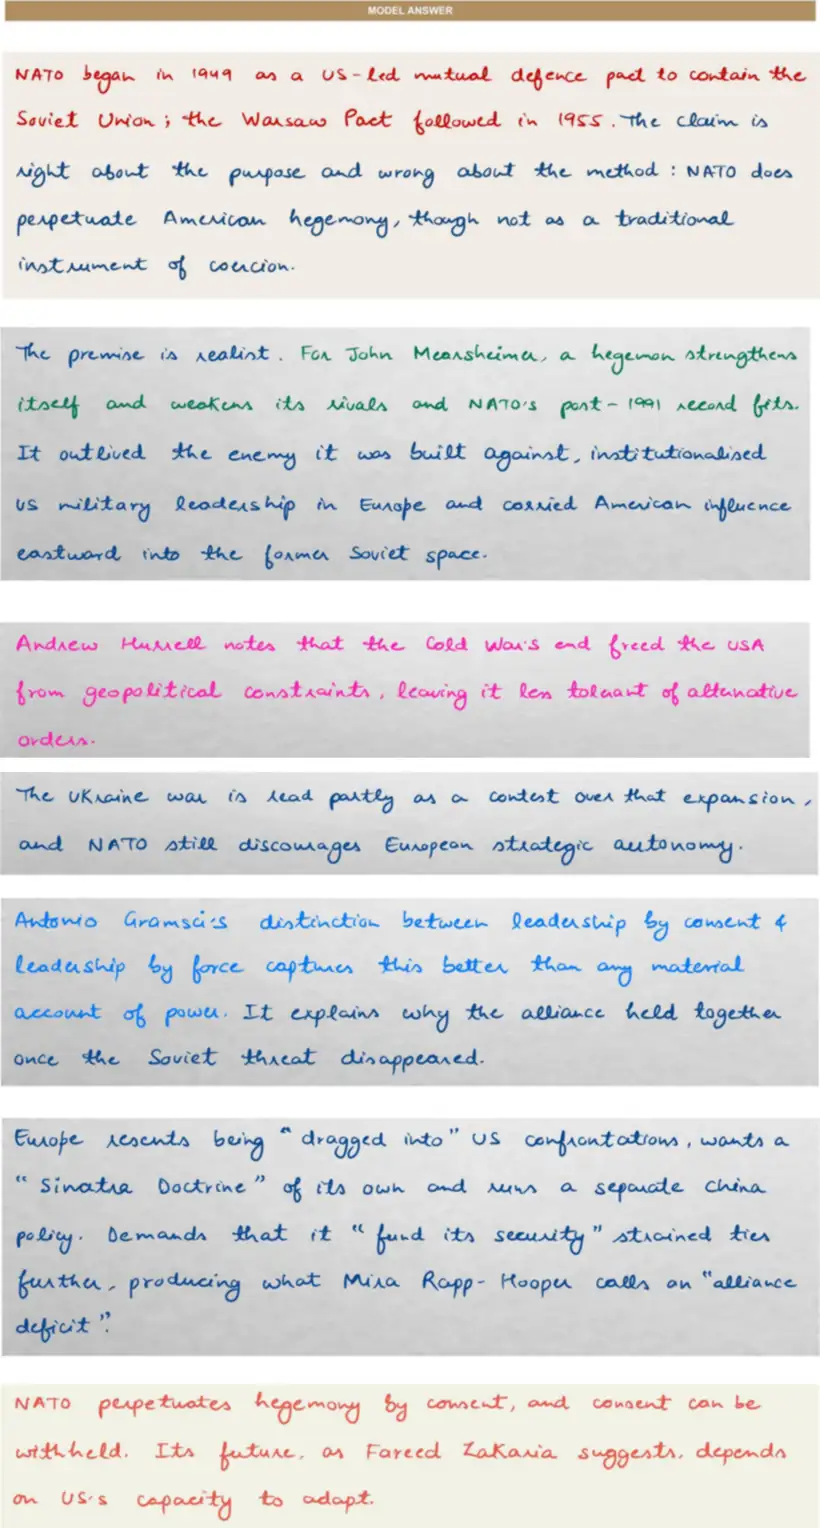 MODEL ANSWER
NATO began in 1949 as a US-led mutual defence pact to contain the
Soviet Union; the Warsaw Pact followed in 1955. The claim is
right about the purpose and wrong about the method: NATO does
perpetuate American hegemony, though not as a traditional
instrument of coercion.
The premise is realist. For John Mearsheimer, a hegemon strengthens
itself and weakens its rivals and NATO's post-1991 record fits.
It outlived the enemy it was built against, institutionalised
US military leadership in Europe and carried American influence
eastward into the former Soviet space.
Andrew Hurrell notes that the Cold War's end freed the USA
from geopolitical constraints, leaving it less tolerant of alternative
orders.
The Ukraine war is read partly as a contest over that expansion,
and NATO still discourages European strategic autonomy.
Antonio Gramsci's distinction between leadership by consent &
leadership by force captures this better than any material
account of power. It explains why the alliance held together
once the Soviet threat disappeared.
Europe resents being "dragged into" US confrontations, wants a
"Sinatra Doctrine" of its own and runs a separate China
policy. Demands that it "fund its security" strained ties
further, producing what Mira Rapp-Hooper calls an "alliance
deficit".
NATO perpetuates hegemony by consent, and consent can be
withheld. Its future, as Fareed Zakaria suggests, depends
on US's capacity to adapt.